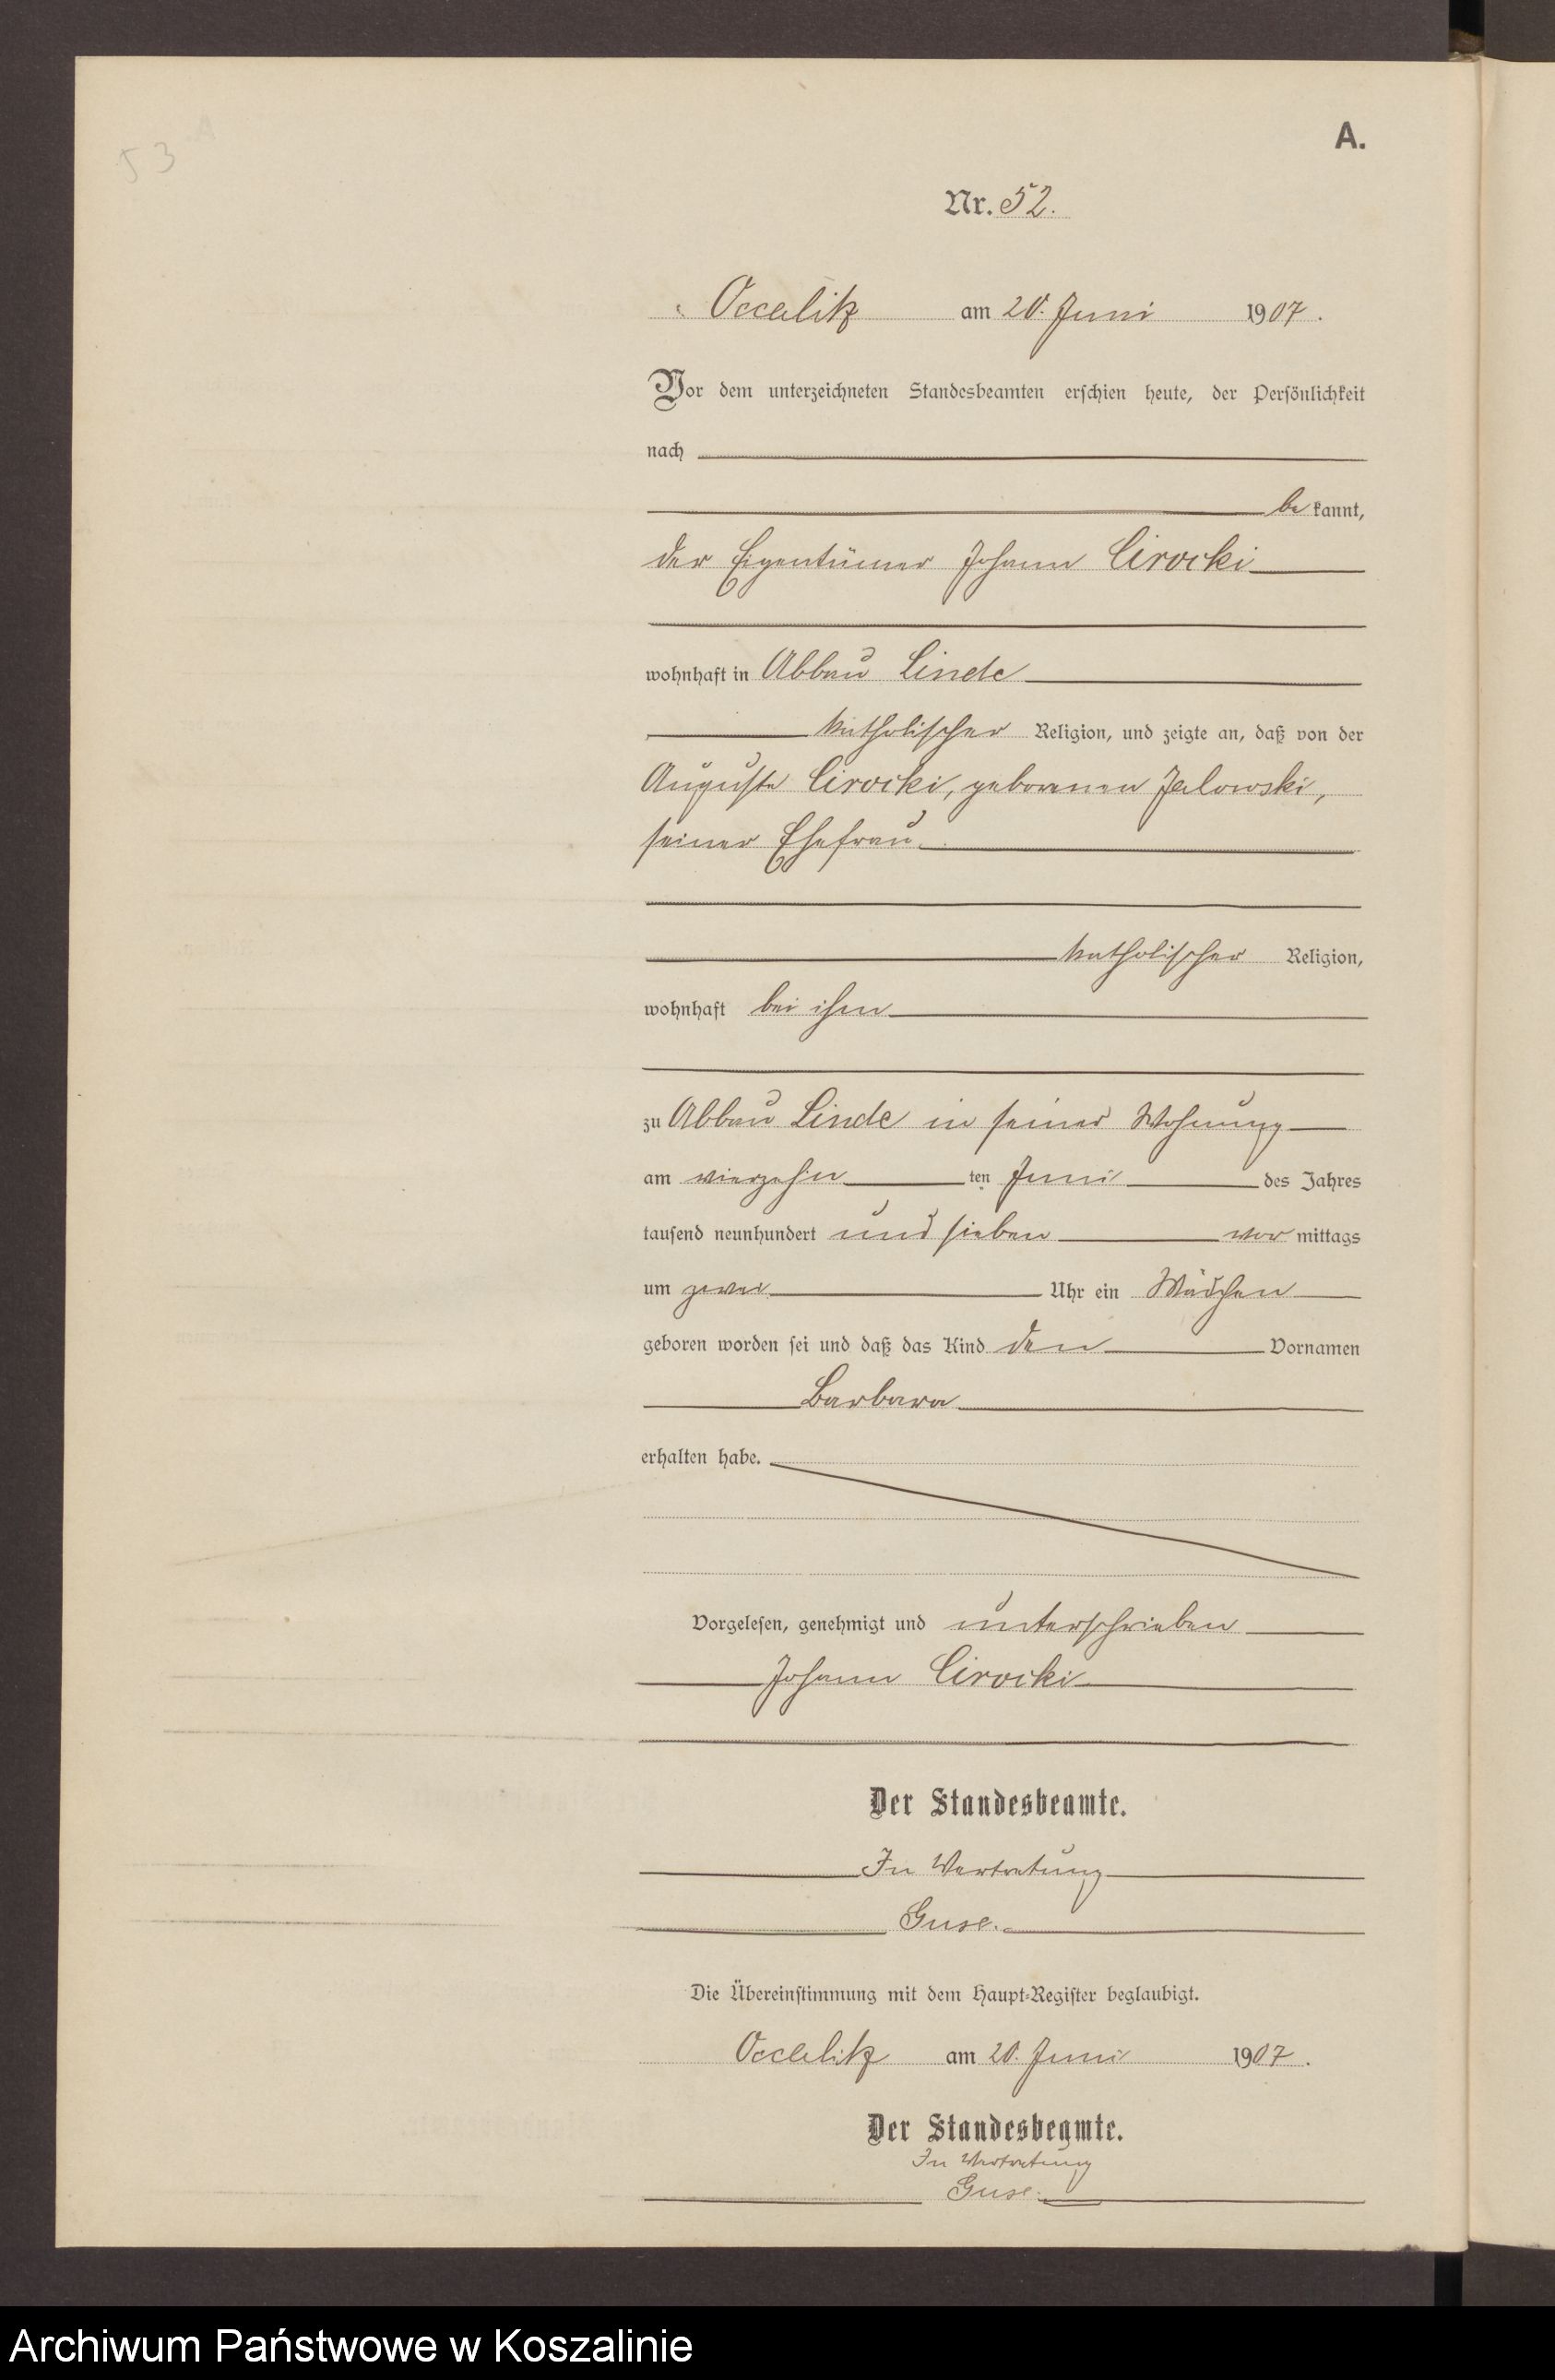 53 A
A.
Nr. 52.
Occalitz am 20. Juni 1907.
Vor dem unterzeichneten Standesbeamten erschien heute, der Persönlichkeit
nach
be kannt,
der Eigentümer Johann Cirocki
wohnhaft in Abbau Linde
katholischer Religion, und zeigte an, daß von der
Auguste Cirocki, geborenen Jalowski,
seiner Ehefrau
katholischer Religion,
wohnhaft bei ihm
zu Abbau Linde in seiner Wohnung
am vierzehn ten Juni des Jahres
tausend neunhundert und sieben vor mittags
um zwei Uhr ein Mädchen
geboren worden sei und daß das Kind den Vornamen
Barbara
erhalten habe.
Vorgelesen, genehmigt und unterschrieben
Johann Cirocki
Der Standesbeamte.
In Vertretung
Guse.
Die Übereinstimmung mit dem Haupt-Register beglaubigt.
Occalitz am 20. Juni 1907.
Der Standesbeamte.
In Vertretung
Guse.
Archiwum Państwowe w Koszalinie